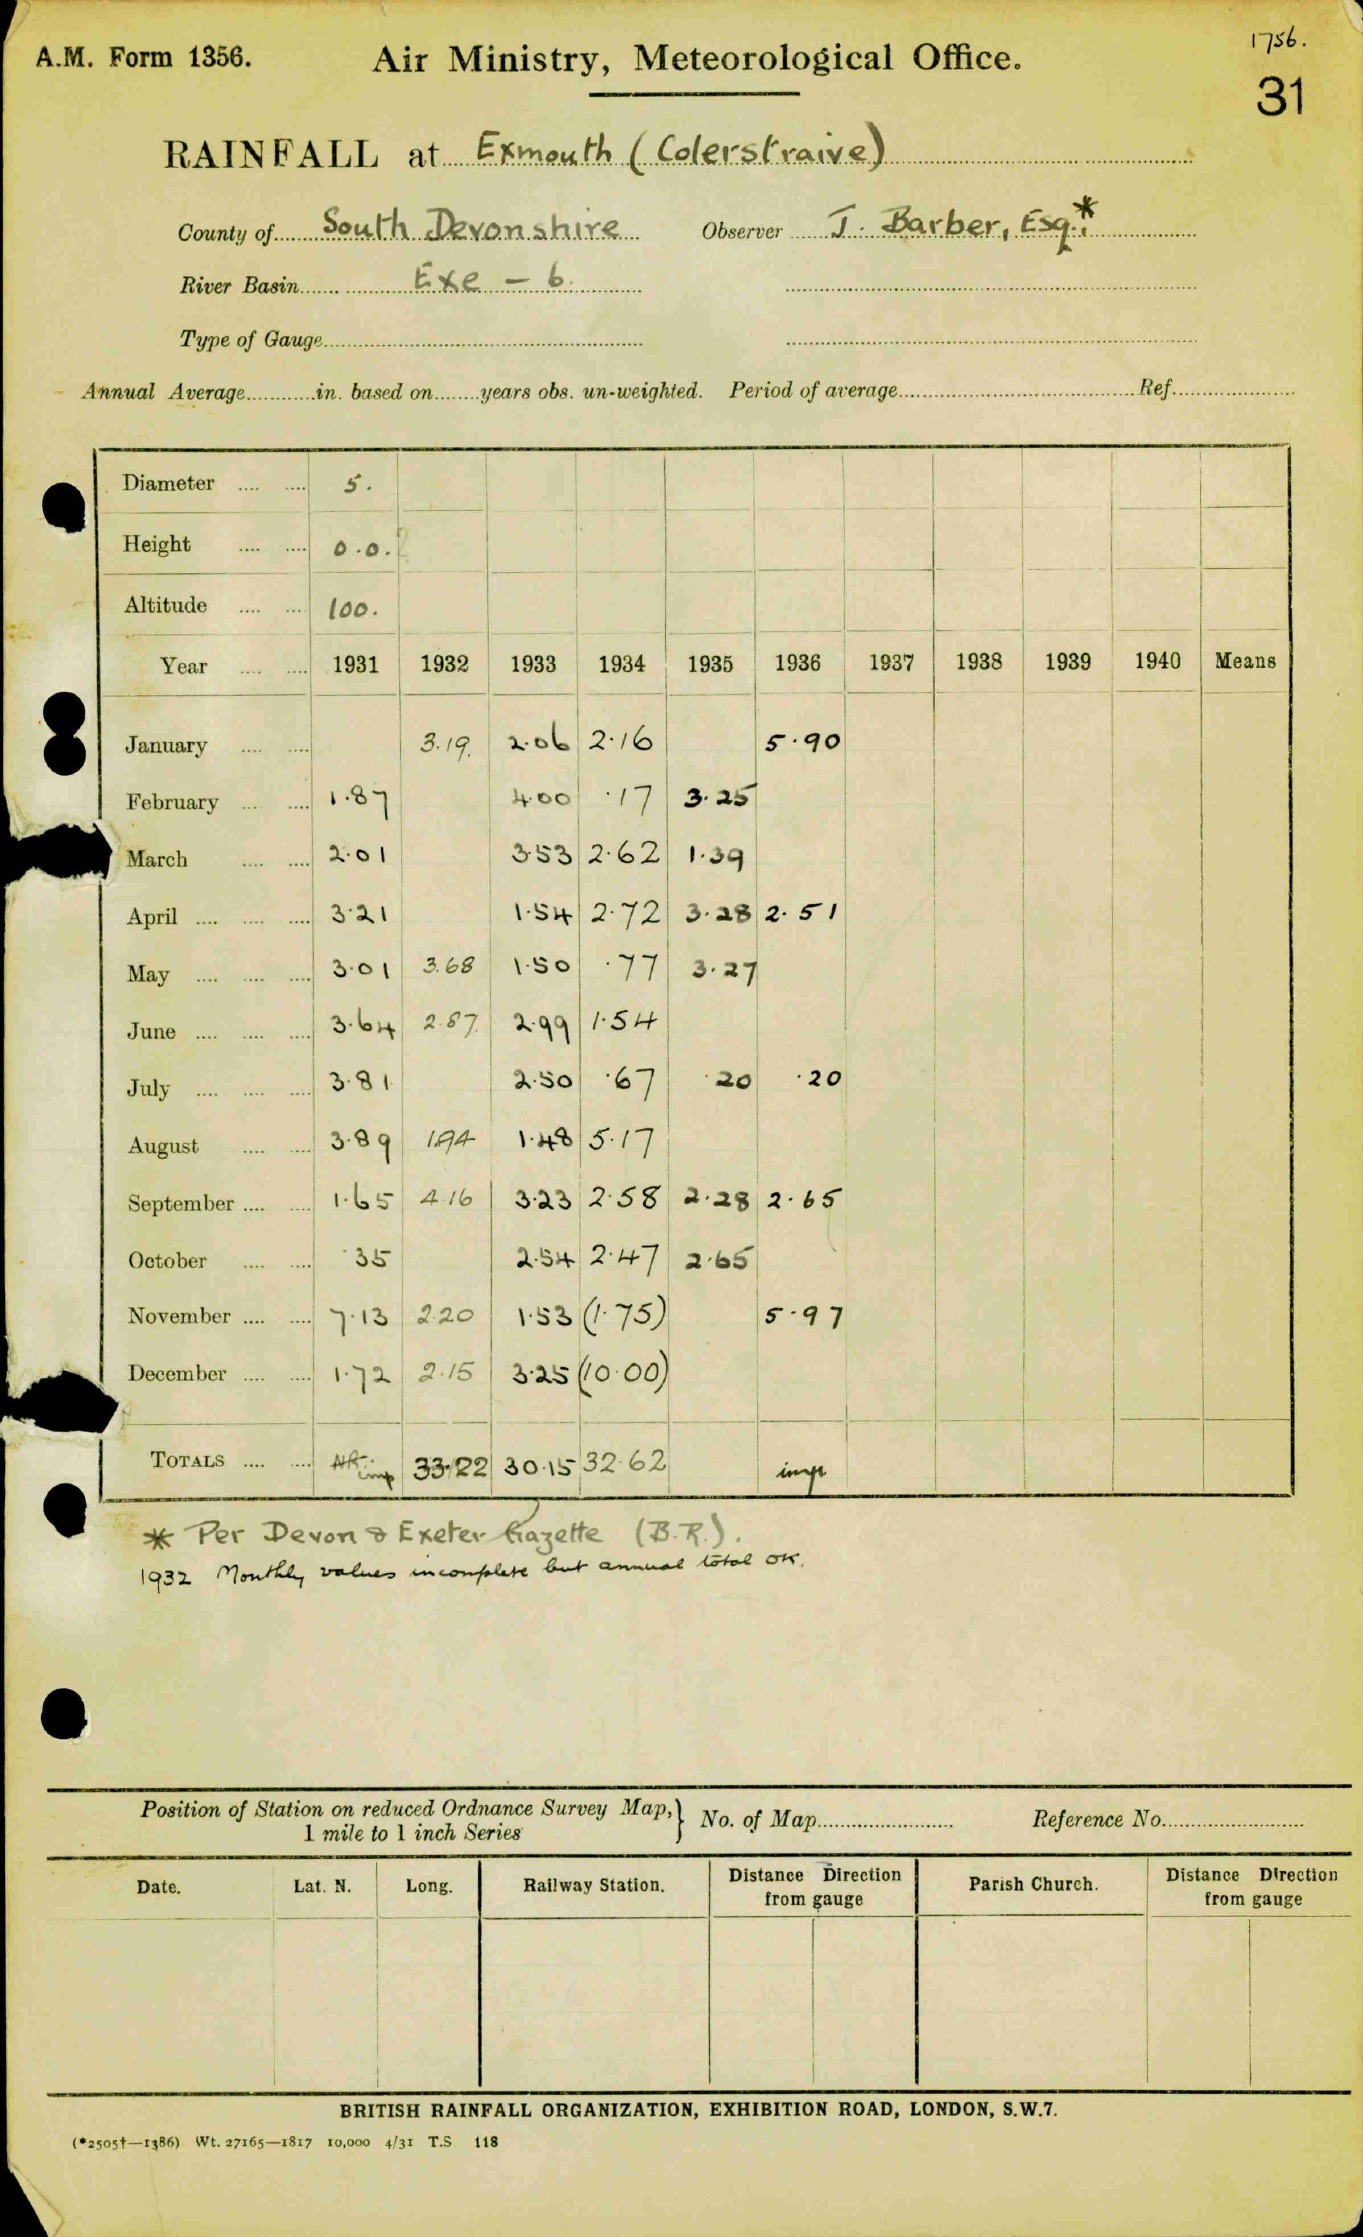 1756.
A.M. Form 1356. Air Ministry, Meteorological Office.
31
RAINFALL at Exmouth (Colerstraive)
County of South Devonshire Observer J. Barber, Esq.*
River Basin Exe - 6.
Type of Gauge
Annual Average in. based on years obs. un-weighted. Period of average Ref.
Diameter 5.
Height 0.0.?
Altitude 100.
Year 1931 1932 1933 1934 1935 1936 1937 1938 1939 1940 Means
January 3.19. 2.06 2.16 5.90
February 1.87 4.00 .17 3.25
March 2.01 3.53 2.62 1.39
April 3.21 1.54 2.72 3.28 2.51
May 3.01 3.68 1.50 .77 3.27
June 3.64 2.87. 2.99 1.54
July 3.81 2.50 .67 .20 .20
August 3.89 1.94 1.48 5.17
September 1.65 4.16 3.23 2.58 2.28 2.65
October .35 2.54 2.47 2.65
November 7.13 2.20 1.53 (1.75) 5.97
December 1.72 2.15 3.25 (10.00)
TOTALS imp 33.22 30.15 32.62 imp
* Per Devon & Exeter Gazette (B.R.).
1932 Monthly values incomplete but annual total OK.
Position of Station on reduced Ordnance Survey Map,} No. of Map Reference No.
1 mile to 1 inch Series
Date. Lat. N. Long. Railway Station. Distance Direction from gauge Parish Church. Distance Direction from gauge
BRITISH RAINFALL ORGANIZATION, EXHIBITION ROAD, LONDON, S.W.7.
(*2505†—1386) Wt. 27165—1817 10,000 4/31 T.S 118